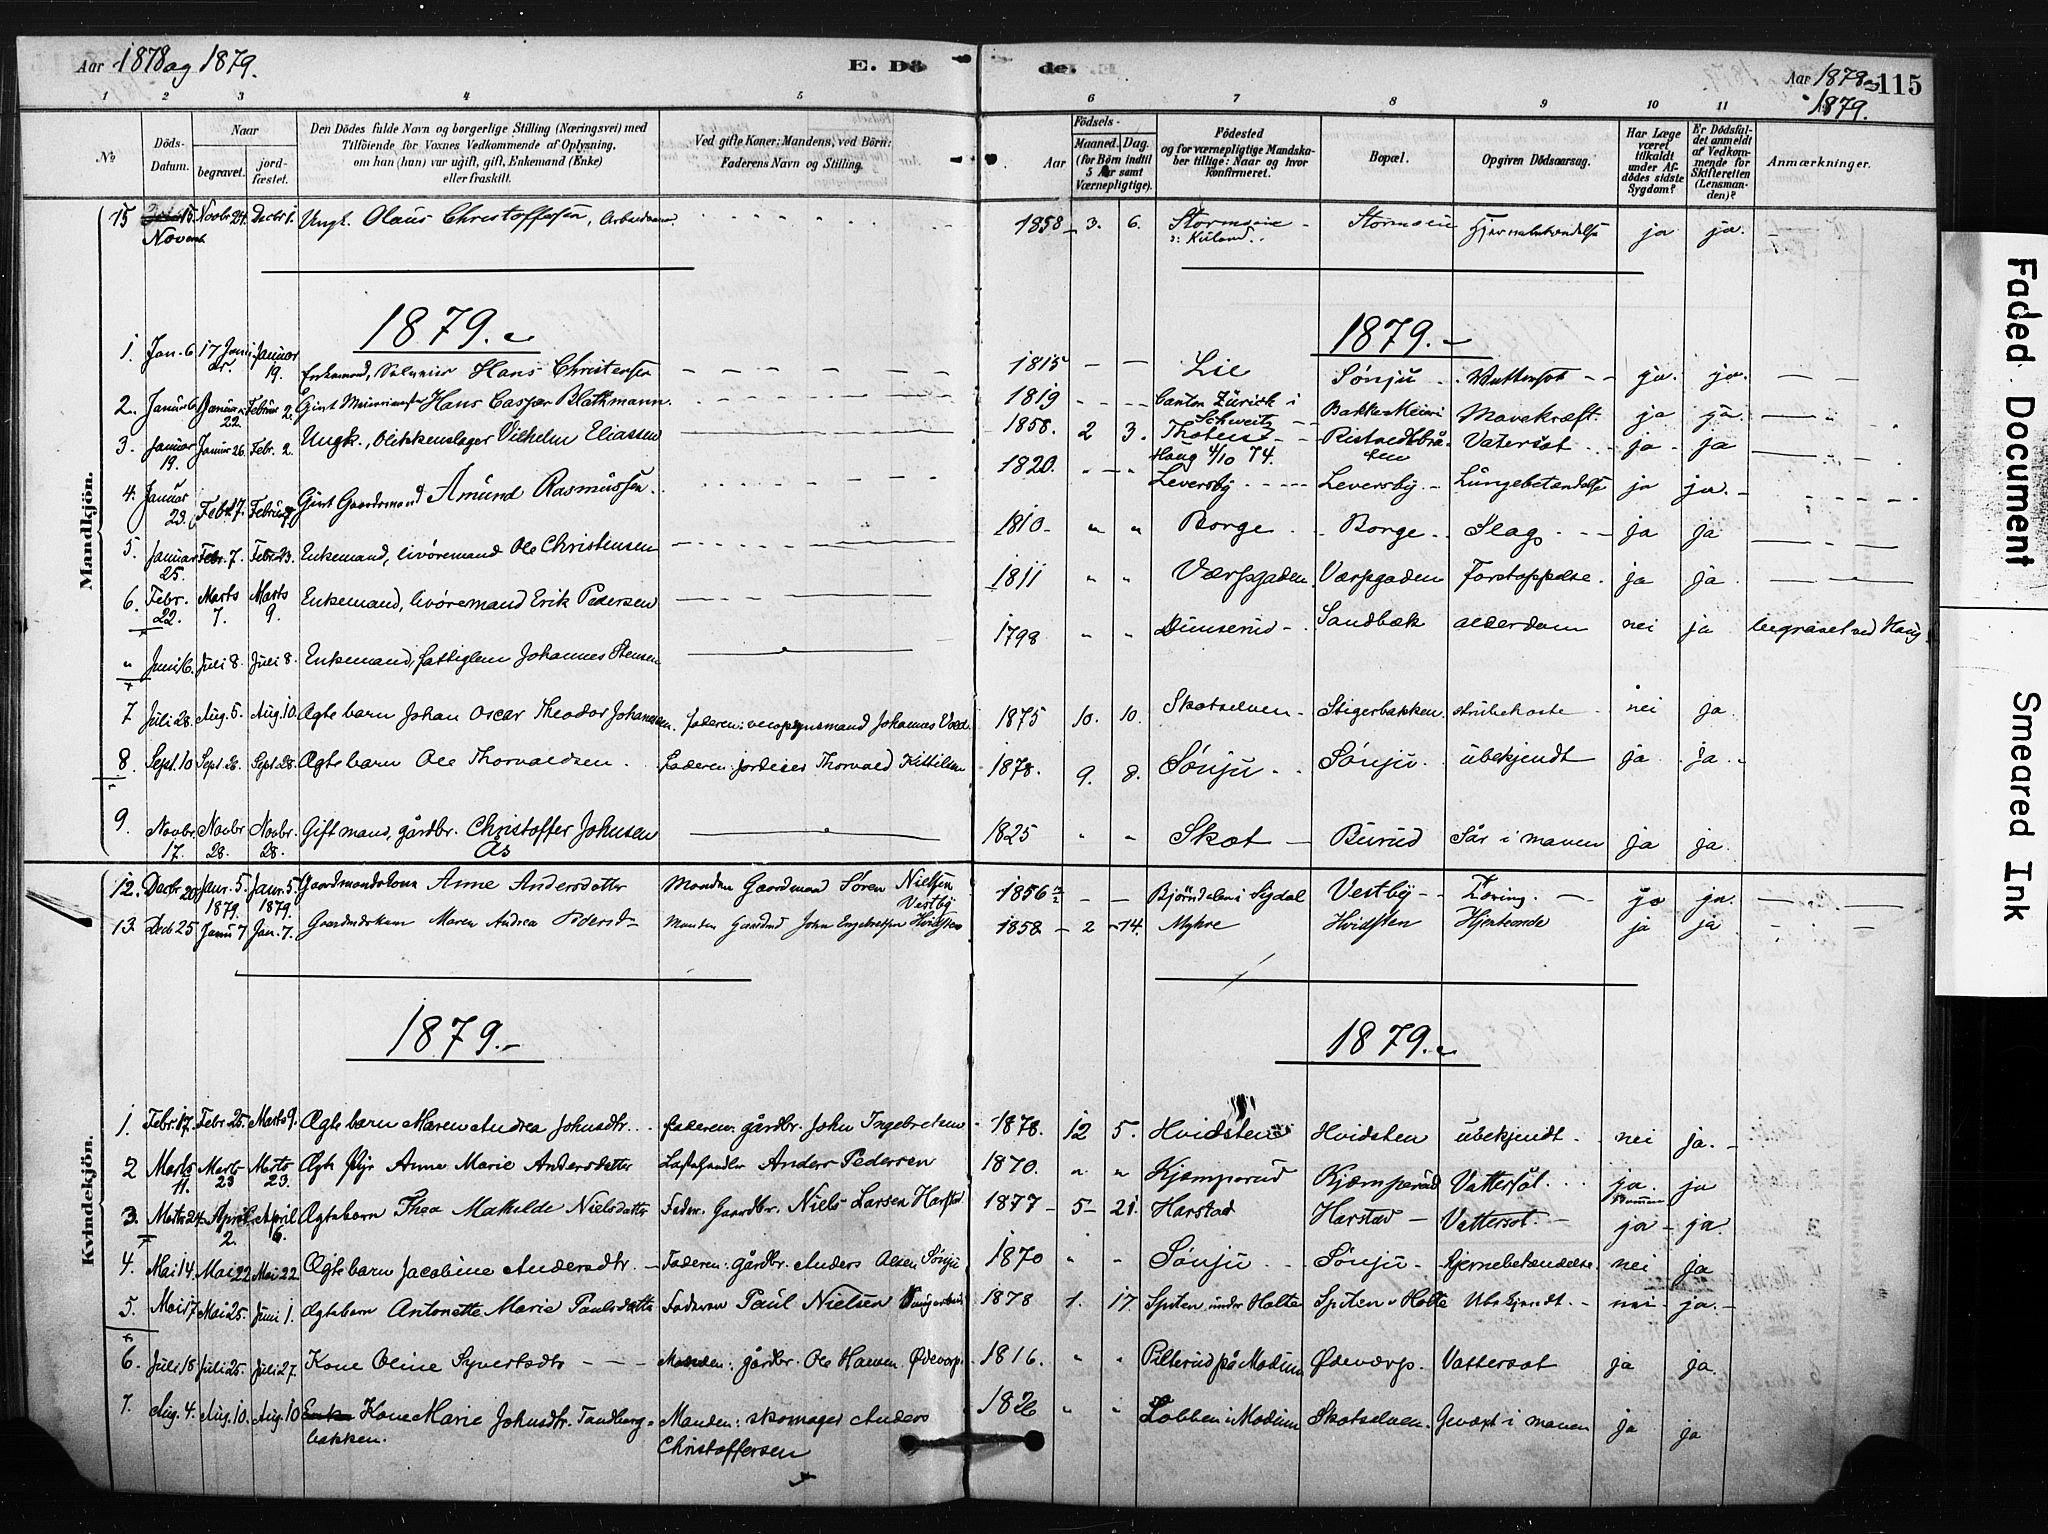 Aar 1878 og 1879.
E. Dö
de.
Aar 1878 og 1879.
115
1 2 3 4 5
6 7 8 9 10 11
No
Döds-Datum.
Naar
begravet.
jordfæstet.
Den Dödes fulde Navn og borgerlige Stilling (Næringsvei) med
Tilföiende for Voxnes Vedkommende af Oplysning,
om han (hun) var ugift, gift, Enkemand (Enke)
eller fraskilt.
Ved gifte Koner: Mandens, ved Börn:
Faderens Navn og Stilling.
Födsels-
Aar
Maaned. Dag.
(for Börn indtil
5 Aar samt
Værnepligtige).
Födested
og for værnepligtige Mandskaber tillige: Naar og hvor
Konfirmeret.
Bopæl.
Opgiven Dödsaarsag.
Har Læge
været
tilkaldt
under Afdödes sidste
Sygdom?
Er Dödsfaldet anmeldt
af Vedkommende for
Skifteretten
(Lensmanden)?
Anmærkninger.
Mandkjön.
15 15 Novemb Novbr 24. Decbr 1. Ungk. Olaus Christoffersen, Arbeidsmand 1858 3. 6. Stormoen Stormoen Hjernebetændelse ja ja.
1879. 1879.
1. Jan. 6 17 Januar. Januar 19. Enkemand, Hans Christensen 1815 Lie Sønju Vattersot ja. ja.
2. Januar 6 Januar 22. Februar 2. Gift Meierimester Hans Caspar Blathmann. 1819 Canton Zürick i Schweitz Bakke Meieri Mavekræft ja ja
3. Januar 19. Januar 26. Febr. 2. Ungk., Blikkenslager Vilhelm Eliassen 1858. 2 3. Thoten Haug 4/10 74. Vatersot ja ja
4. Januar 23. Feb. 7. Februar 7. Gift Gaardmand Amund Rasmussen. 1820. Leversby Leversby Lungebetændelse ja ja.
5. Januar 25. Febr. 7. Febr. 23. Enkemand, livøremand Ole Christensen 1810 " " Borge Borge Slag ja ja
6. Febr. 22. Marts 7. Marts 9. Enkemand, livøremand Erik Pedersen 1811 " " Værpgaden Værpgaden Forstoppelse. ja ja
" Juni 16. Juli 8. Juli 8. Enkemand, fattiglem Johannes Stensen 1798 " " Dunserud Sandbæk alderdom nei ja begravet ved Haug
7 Juli 28. Aug. 5. Aug. 10. Ægte barn Johan Oscar Theodor Johansen. faderen: Johannes 1875 10. 10. Skotselven Stigerbakken. strubehoste nei ja.
8. Sept. 10 Sept. 26. Sept. 28. Ægte barn Ole Thorvaldsen. Faderen: jordeier Thorvald Kittilsen 1878. 9. 8. Sønju Sønju ubekjendt ja ja.
9. Novbr. 17. Novbr 28. Novbr. 28. Gift mand, gårdbr. Christoffer Johnsen Ås 1825 " " Skot Burud Sår i maven ja ja.
Kvindekjön.
12. Decbr 20 Janr. 5. 1879. Janr. 5. 1879. Gaardmandskone Anne Andersdatter Manden Gaardmand Søren Nielsen Vestby 1856 Bjørndalen i Sigdal Vestby Tæring. ja ja.
13. Decb 25 Janu 7 Jan. 7. Gaardmdskone Maren Andrea Pedersd Manden Gaardmd John Engebretsen Hvidsten 1858 2 14. Myhre Hvidsten ja ja
1879. 1879.
1. Febr. 17. Febr. 25. Marts 9. Ægte barn Maren Andrea Johnsdtr. faderen: gårdbr. John Ingebretsen 1878. 12 5. Hvidsten Hvidsten ubekjendt nei ja.
2 Marts 11. Marts 23 Marts 23. Ægte Pige Anne Marie Andersdatter Anders Pedersen 1870. " " Kjæmperud Kjæmperud Vattersot ja. ja
3. Marts 24. April 2. April 6. Ægtebarn Thea Mathilde Nielsdatter Fader. Gaardbr. Niels Larsen Harstad 1877 5 21. Harstad Harstad Vattersot. ja ja.
4. Mai 14. Mai 22 Mai 22 Ægte barn Jacobine Andersdtr. Faderen: gårdbr. Anders Olsen Sønju 1870 " " Sønju Sønju Hjernebetændelse. nei ja
5. Mai 17 Mai 25. Juni 1. Ægtebarn Antonette Marie Paulsdatter Faderen Paul Nielsen 1878 1. 17 Spiten under Holte Spiten u Holte Ubekjendt. nei ja.
6. Juli 18 Juli 25. Juli 27. Kone Oline Syvertsdtr Manden: gårdbr. Ole Hansen Ødevorp. 1816. " " Pilterud på Modum Ødeværp. Vattersot ja ja.
7. Aug. 4. Aug. 10. Aug. 10 Kone Marie Johnsdtr. Tandbergbakken. Manden: skomager Anders Christoffersen 1826 " " Lobben i Modum Skotselven. Gevæxt i maven ja ja
Faded Document
Smeared Ink